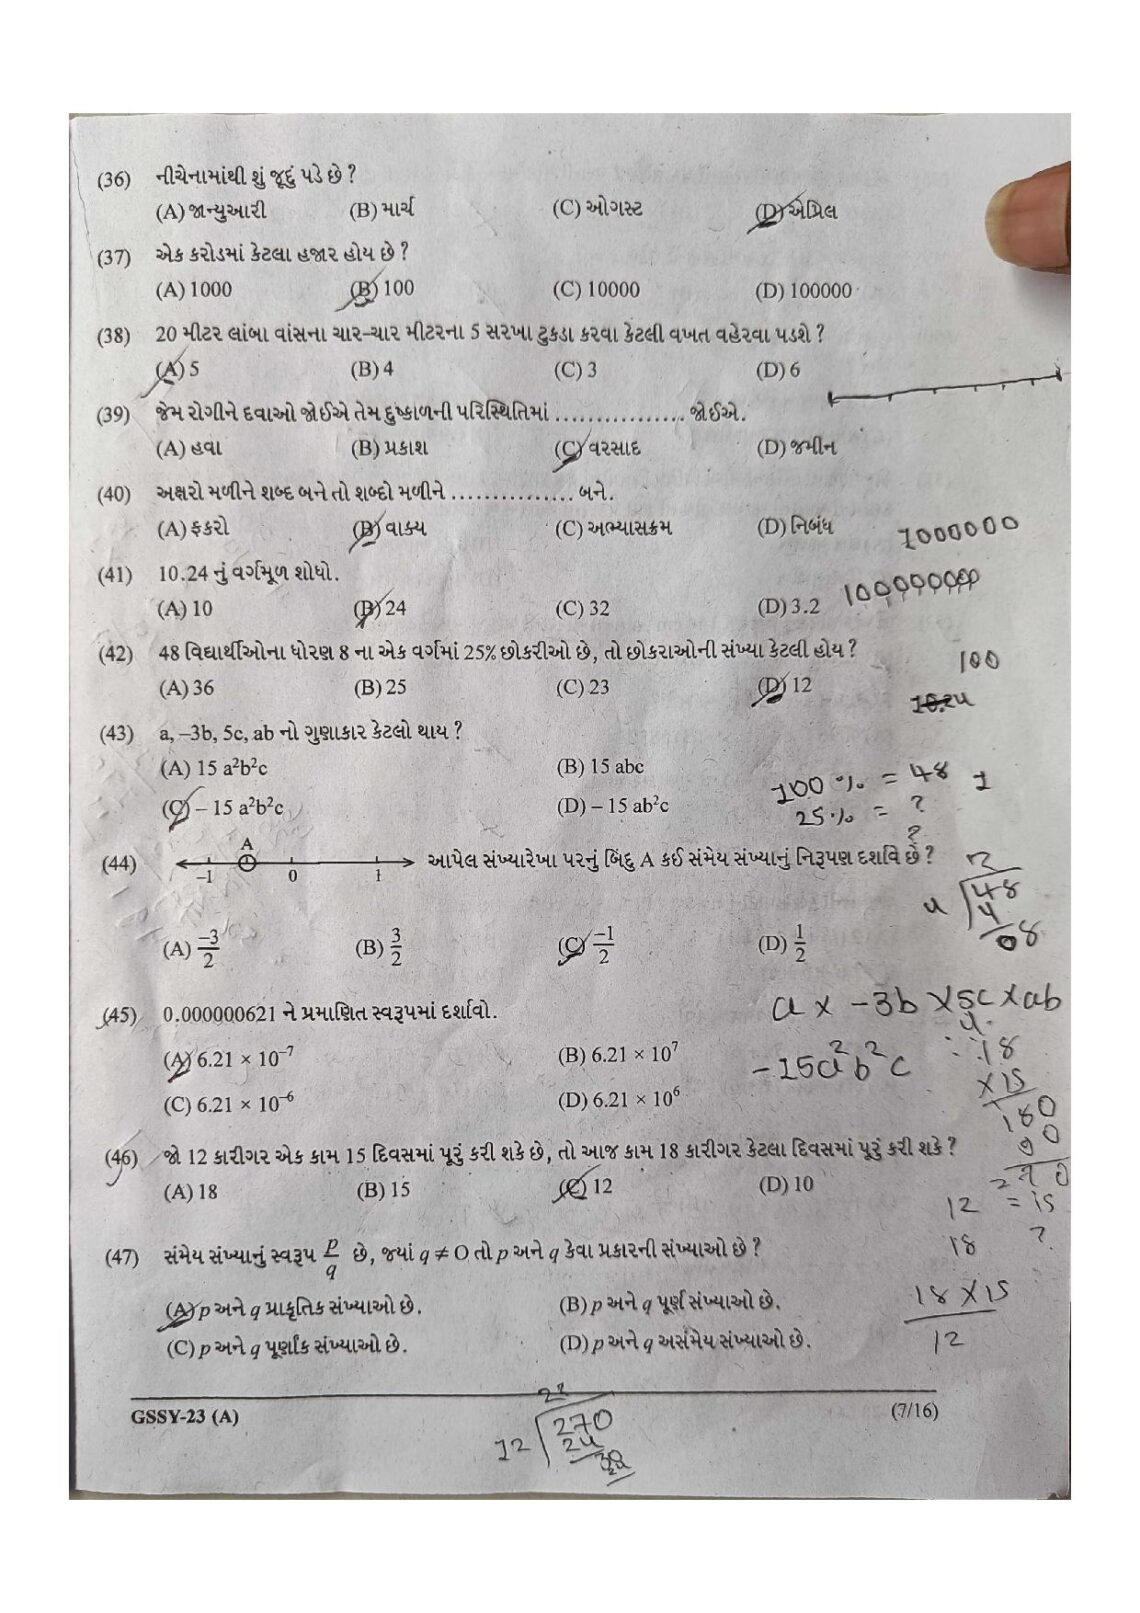 (36) નીચેનામાંથી શું જૂદું પડે છે ?
(A) જાન્યુઆરી (B) માર્ચ (C) ઓગસ્ટ (D) એપ્રિલ
(37) એક કરોડમાં કેટલા હજાર હોય છે ?
(A) 1000 (B) 100 (C) 10000 (D) 100000
(38) 20 મીટર લાંબા વાંસના ચાર-ચાર મીટરના 5 સરખા ટુકડા કરવા કેટલી વખત વહેરવા પડશે ?
(A) 5 (B) 4 (C) 3 (D) 6
(39) જેમ રોગીને દવાઓ જોઈએ તેમ દુષ્કાળની પરિસ્થિતિમાં ................ જોઈએ.
(A) હવા (B) પ્રકાશ (C) વરસાદ (D) જમીન
(40) અક્ષરો મળીને શબ્દ બને તો શબ્દો મળીને ............... બને.
(A) ફકરો (B) વાક્ય (C) અભ્યાસક્રમ (D) નિબંધ
1000000
(41) 10.24 નું વર્ગમૂળ શોધો.
(A) 10 (B) 24 (C) 32 (D) 3.2
100000000
(42) 48 વિદ્યાર્થીઓના ધોરણ 8 ના એક વર્ગમાં 25% છોકરીઓ છે, તો છોકરાઓની સંખ્યા કેટલી હોય ?
100
(A) 36 (B) 25 (C) 23 (D) 12
10.24
(43) a, –3b, 5c, ab નો ગુણાકાર કેટલો થાય ?
(A) 15 a²b²c (B) 15 abc
100 % = 48 1
(C) – 15 a²b²c (D) – 15 ab²c
25 % = ?
?
(44) A –1 0 1 આપેલ સંખ્યારેખા પરનું બિંદુ A કઈ સંમેય સંખ્યાનું નિરૂપણ દર્શાવે છે ?
4 48
4
08
(A) –3/2 (B) 3/2 (C) –1/2 (D) 1/2
(45) 0.000000621 ને પ્રમાણિત સ્વરૂપમાં દર્શાવો.
a x -3b x 5c x ab
(A) 6.21 × 10⁻⁷ (B) 6.21 × 10⁷
-15a²b²c
(C) 6.21 × 10⁻⁶ (D) 6.21 × 10⁶
18
x 15
180
90
270
(46) જો 12 કારીગર એક કામ 15 દિવસમાં પૂરું કરી શકે છે, તો આજ કામ 18 કારીગર કેટલા દિવસમાં પૂરું કરી શકે ?
(A) 18 (B) 15 (C) 12 (D) 10
12 = 15
18 ?
(47) સંમેય સંખ્યાનું સ્વરૂપ p/q છે, જ્યાં q ≠ O તો p અને q કેવા પ્રકારની સંખ્યાઓ છે ?
(A) p અને q પ્રાકૃતિક સંખ્યાઓ છે. (B) p અને q પૂર્ણ સંખ્યાઓ છે.
18 x 15
12
(C) p અને q પૂર્ણાંક સંખ્યાઓ છે. (D) p અને q અસંમેય સંખ્યાઓ છે.
GSSY-23 (A) (7/16)
22
12 270
24